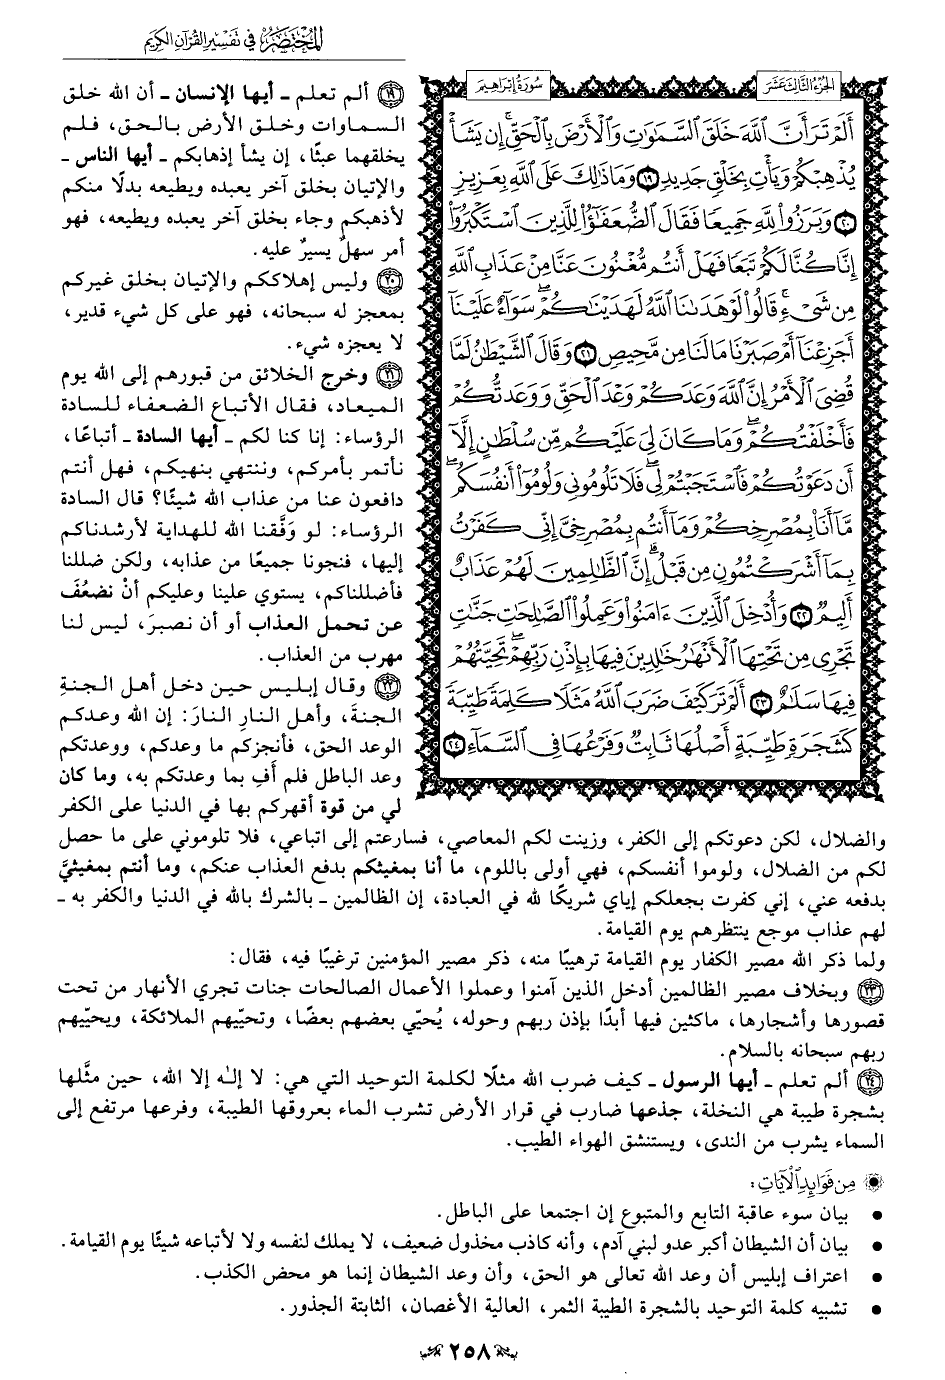 المختصر في تفسير القرآن الكريم
الجزء الثالث عشر
سورة إبراهيم
أَلَمْ تَرَ أَنَّ ٱللَّهَ خَلَقَ ٱلسَّمَٰوَٰتِ وَٱلْأَرْضَ بِٱلْحَقِّ ۚ إِن يَشَأْ
يُذْهِبْكُمْ وَيَأْتِ بِخَلْقٍ جَدِيدٍ ١٩ وَمَا ذَٰلِكَ عَلَى ٱللَّهِ بِعَزِيزٍ
٢٠ وَبَرَزُوا۟ لِلَّهِ جَمِيعًا فَقَالَ ٱلضُّعَفَٰٓؤُا۟ لِلَّذِينَ ٱسْتَكْبَرُوٓا۟
إِنَّا كُنَّا لَكُمْ تَبَعًا فَهَلْ أَنتُم مُّغْنُونَ عَنَّا مِنْ عَذَابِ ٱللَّهِ
مِن شَىْءٍ ۚ قَالُوا۟ لَوْ هَدَىٰنَا ٱللَّهُ لَهَدَيْنَٰكُمْ ۖ سَوَآءٌ عَلَيْنَآ
أَجَزِعْنَآ أَمْ صَبَرْنَا مَا لَنَا مِن مَّحِيصٍ ٢١ وَقَالَ ٱلشَّيْطَٰنُ لَمَّا
قُضِىَ ٱلْأَمْرُ إِنَّ ٱللَّهَ وَعَدَكُمْ وَعْدَ ٱلْحَقِّ وَوَعَدتُّكُمْ
فَأَخْلَفْتُكُمْ ۖ وَمَا كَانَ لِىَ عَلَيْكُم مِّن سُلْطَٰنٍ إِلَّآ
أَن دَعَوْتُكُمْ فَٱسْتَجَبْتُمْ لِى ۖ فَلَا تَلُومُونِى وَلُومُوٓا۟ أَنفُسَكُم ۖ
مَّآ أَنَا۠ بِمُصْرِخِكُمْ وَمَآ أَنتُم بِمُصْرِخِىَّ ۖ إِنِّى كَفَرْتُ
بِمَآ أَشْرَكْتُمُونِ مِن قَبْلُ ۗ إِنَّ ٱلظَّٰلِمِينَ لَهُمْ عَذَابٌ
أَلِيمٌ ٢٢ وَأُدْخِلَ ٱلَّذِينَ ءَامَنُوا۟ وَعَمِلُوا۟ ٱلصَّٰلِحَٰتِ جَنَّٰتٍ
تَجْرِى مِن تَحْتِهَا ٱلْأَنْهَٰرُ خَٰلِدِينَ فِيهَا بِإِذْنِ رَبِّهِمْ ۖ تَحِيَّتُهُمْ
فِيهَا سَلَٰمٌ ٢٣ أَلَمْ تَرَ كَيْفَ ضَرَبَ ٱللَّهُ مَثَلًا كَلِمَةً طَيِّبَةً
كَشَجَرَةٍ طَيِّبَةٍ أَصْلُهَا ثَابِتٌ وَفَرْعُهَا فِى ٱلسَّمَآءِ ٢٤
١٩ ألم تعلم - أيها الإنسان - أن الله خلق
السماوات وخلق الأرض بالحق، فلم
يخلقهما عبثًا، إن يشأ إذهابكم - أيها الناس -
والإتيان بخلق آخر يعبده ويطيعه بدلًا منكم
لأذهبكم وجاء بخلق آخر يعبده ويطيعه، فهو
أمر سهلٌ يسيرٌ عليه.
٢٠ وليس إهلاككم والإتيان بخلق غيركم
بمعجز له سبحانه، فهو على كل شيء قدير،
لا يعجزه شيء.
٢١ وخرج الخلائق من قبورهم إلى الله يوم
الميعاد، فقال الأتباع الضعفاء للسادة
الرؤساء: إنا كنا لكم - أيها السادة - أتباعًا،
نأتمر بأمركم، وننتهي بنهيكم، فهل أنتم
دافعون عنا من عذاب الله شيئًا؟ قال السادة
الرؤساء: لو وَفَّقنا الله للهداية لأرشدناكم
إليها، فنجونا جميعًا من عذابه، ولكن ضللنا
فأضللناكم، يستوي علينا وعليكم أنْ نضعُفَ
عن تحمل العذاب أو أن نصبرَ، ليس لنا
مهرب من العذاب.
٢٢ وقال إبليس حين دخل أهل الجنةِ
الجنةَ، وأهل النارِ النارَ: إن الله وعدكم
الوعد الحق، فأنجزكم ما وعدكم، ووعدتكم
وعد الباطل فلم أَفِ بما وعدتكم به، وما كان
لي من قوة أقهركم بها في الدنيا على الكفر
والضلال، لكن دعوتكم إلى الكفر، وزينت لكم المعاصي، فسارعتم إلى اتباعي، فلا تلوموني على ما حصل
لكم من الضلال، ولوموا أنفسكم، فهي أولى باللوم، ما أنا بمغيثكم بدفع العذاب عنكم، وما أنتم بمغيثيَّ
بدفعه عني، إني كفرت بجعلكم إياي شريكًا لله في العبادة، إن الظالمين - بالشرك بالله في الدنيا والكفر به -
لهم عذاب موجع ينتظرهم يوم القيامة.
ولما ذكر الله مصير الكفار يوم القيامة ترهيبًا منه، ذكر مصير المؤمنين ترغيبًا فيه، فقال:
٢٣ وبخلاف مصير الظالمين أدخل الذين آمنوا وعملوا الأعمال الصالحات جنات تجري الأنهار من تحت
قصورها وأشجارها، ماكثين فيها أبدًا بإذن ربهم وحوله، يُحيّي بعضهم بعضًا، وتحيّيهم الملائكة، ويحيّيهم
ربهم سبحانه بالسلام.
٢٤ ألم تعلم - أيها الرسول - كيف ضرب الله مثلًا لكلمة التوحيد التي هي: لا إله إلا الله، حين مثَّلها
بشجرة طيبة هي النخلة، جذعها ضارب في قرار الأرض تشرب الماء بعروقها الطيبة، وفرعها مرتفع إلى
السماء يشرب من الندى، ويستنشق الهواء الطيب.
من فوائد الآيات:
• بيان سوء عاقبة التابع والمتبوع إن اجتمعا على الباطل.
• بيان أن الشيطان أكبر عدو لبني آدم، وأنه كاذب مخذول ضعيف، لا يملك لنفسه ولا لأتباعه شيئًا يوم القيامة.
• اعتراف إبليس أن وعد الله تعالى هو الحق، وأن وعد الشيطان إنما هو محض الكذب.
• تشبيه كلمة التوحيد بالشجرة الطيبة الثمر، العالية الأغصان، الثابتة الجذور.
٢٥٨